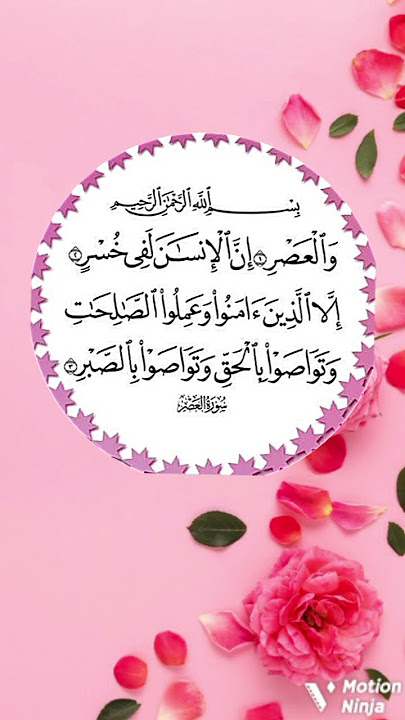 بِسْمِ ٱللَّهِ ٱلرَّحْمَٰنِ ٱلرَّحِيمِ
وَٱلْعَصْرِ ۝١ إِنَّ ٱلْإِنسَٰنَ لَفِى خُسْرٍ ۝٢
إِلَّا ٱلَّذِينَ ءَامَنُوا۟ وَعَمِلُوا۟ ٱلصَّٰلِحَٰتِ
وَتَوَاصَوْا۟ بِٱلْحَقِّ وَتَوَاصَوْا۟ بِٱلصَّبْرِ ۝٣
سُورَةُ العَصْرِ
Motion
Ninja